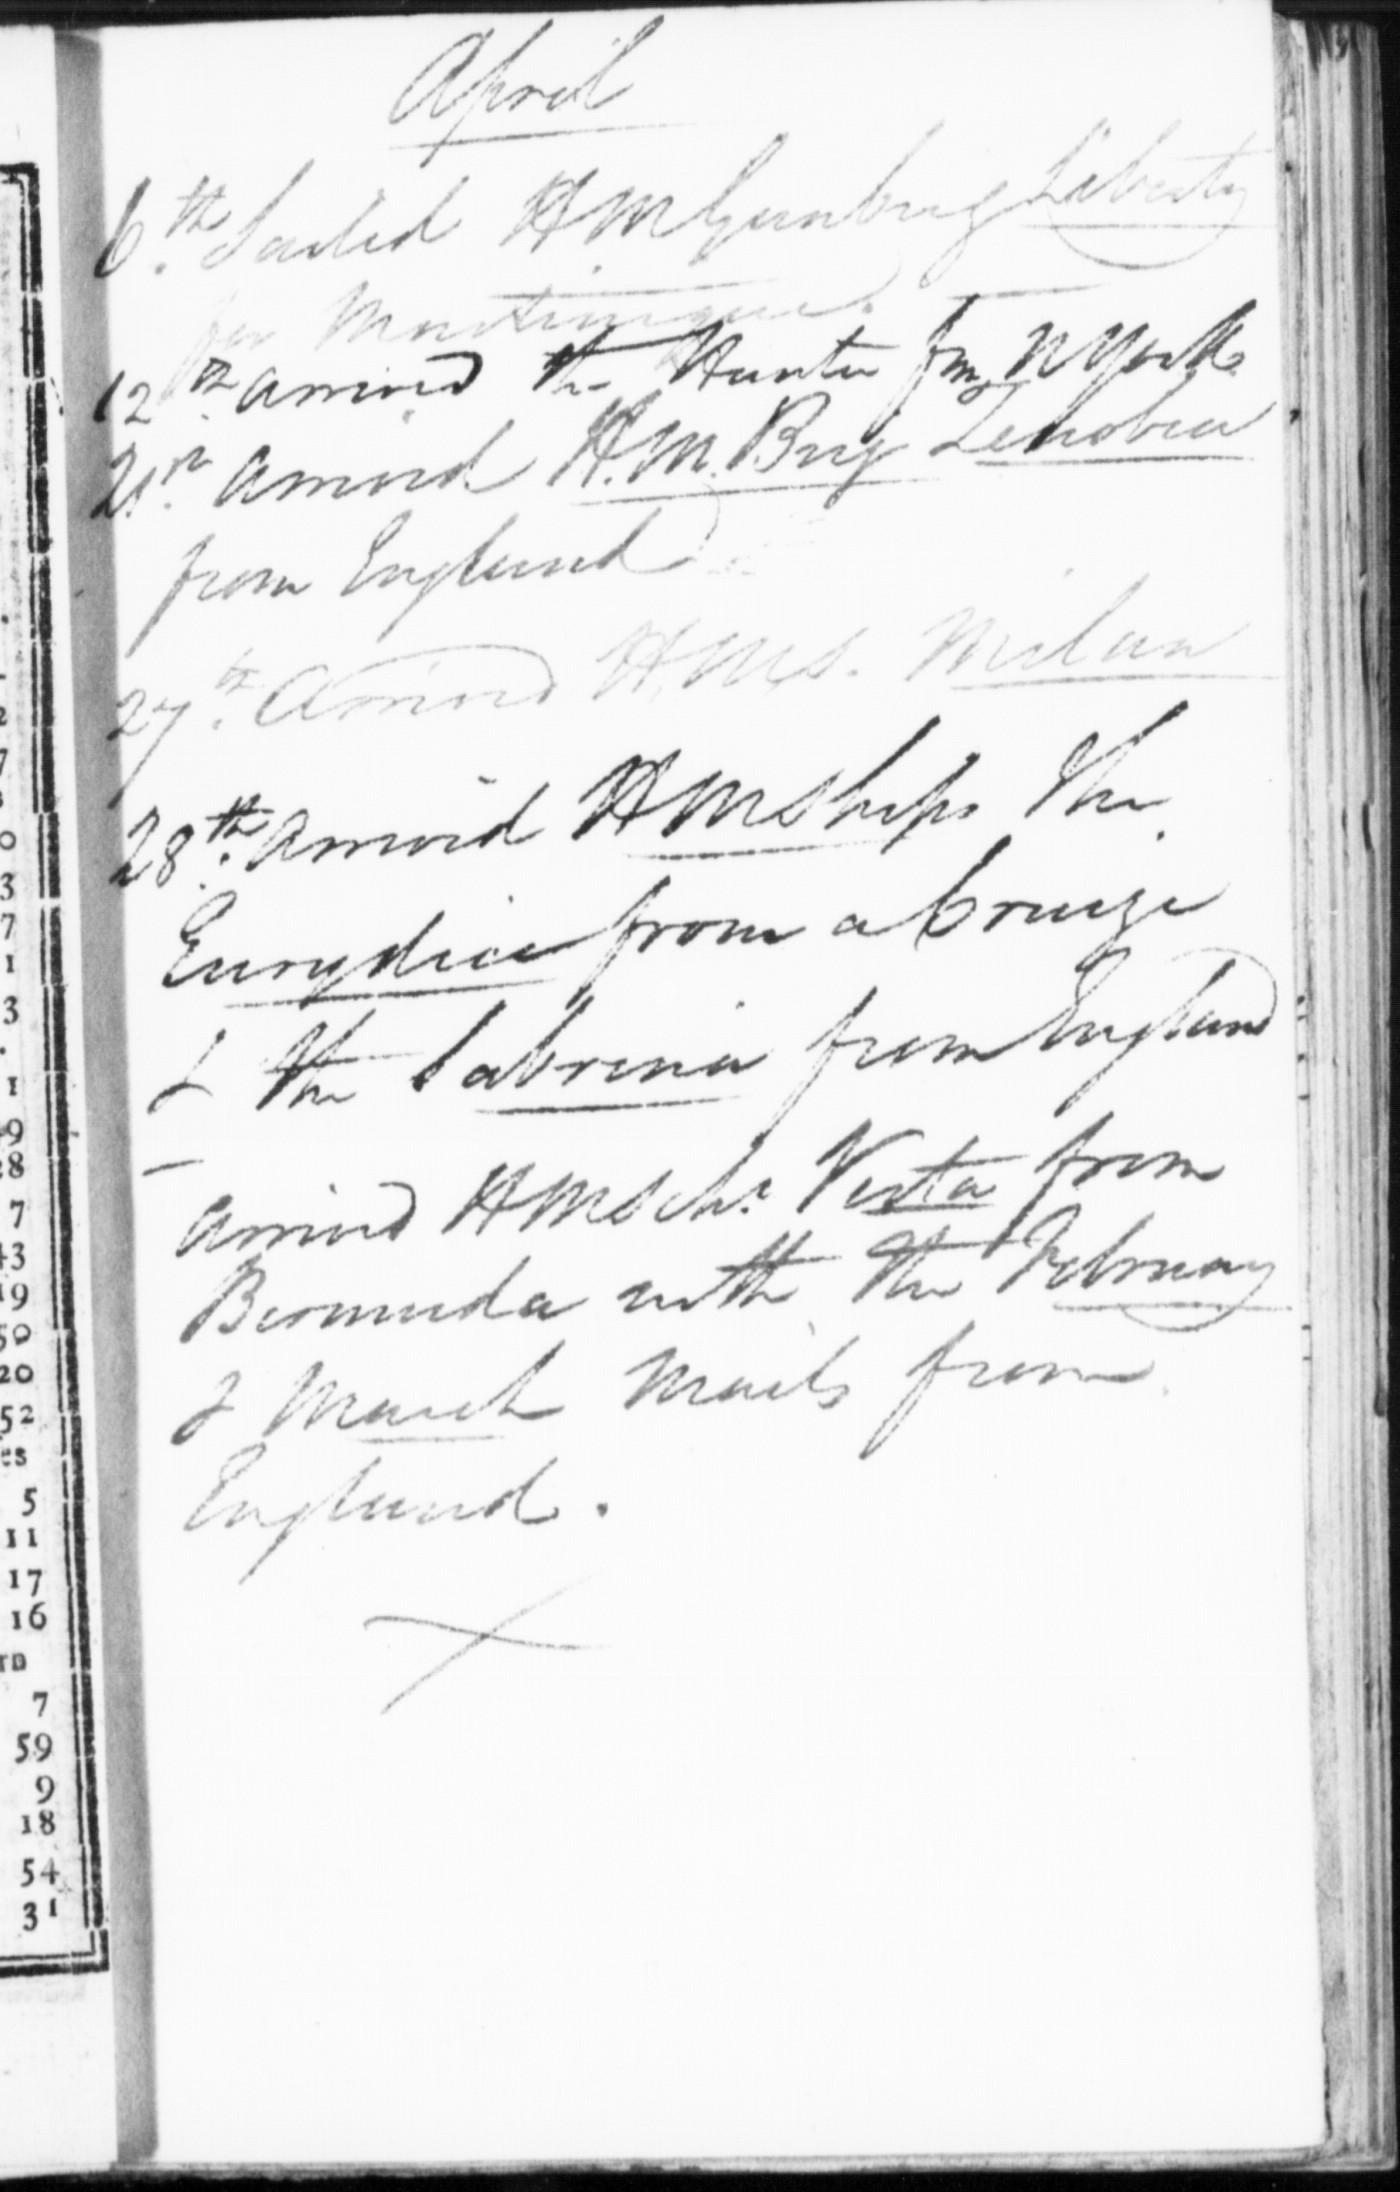 April
6th. Sailed HM Gunbrig Liberty
for Martinique.
12th arrived the Hunter fm N York
21st. arrived H.M. Brig Zenobia
from England
27th. Arrived H.M.S. Milan
28th. arrived HM Ships The
Eurydice from a Cruize
& the Sabrina from England
—
arrived HM Schr. Vesta from
Bermuda with the February
& March Mails from
England.
2
7
0
3
7
1
3
1
9
28
7
43
19
50
20
52
es
5
11
17
16
rn
7
59
9
18
54
31